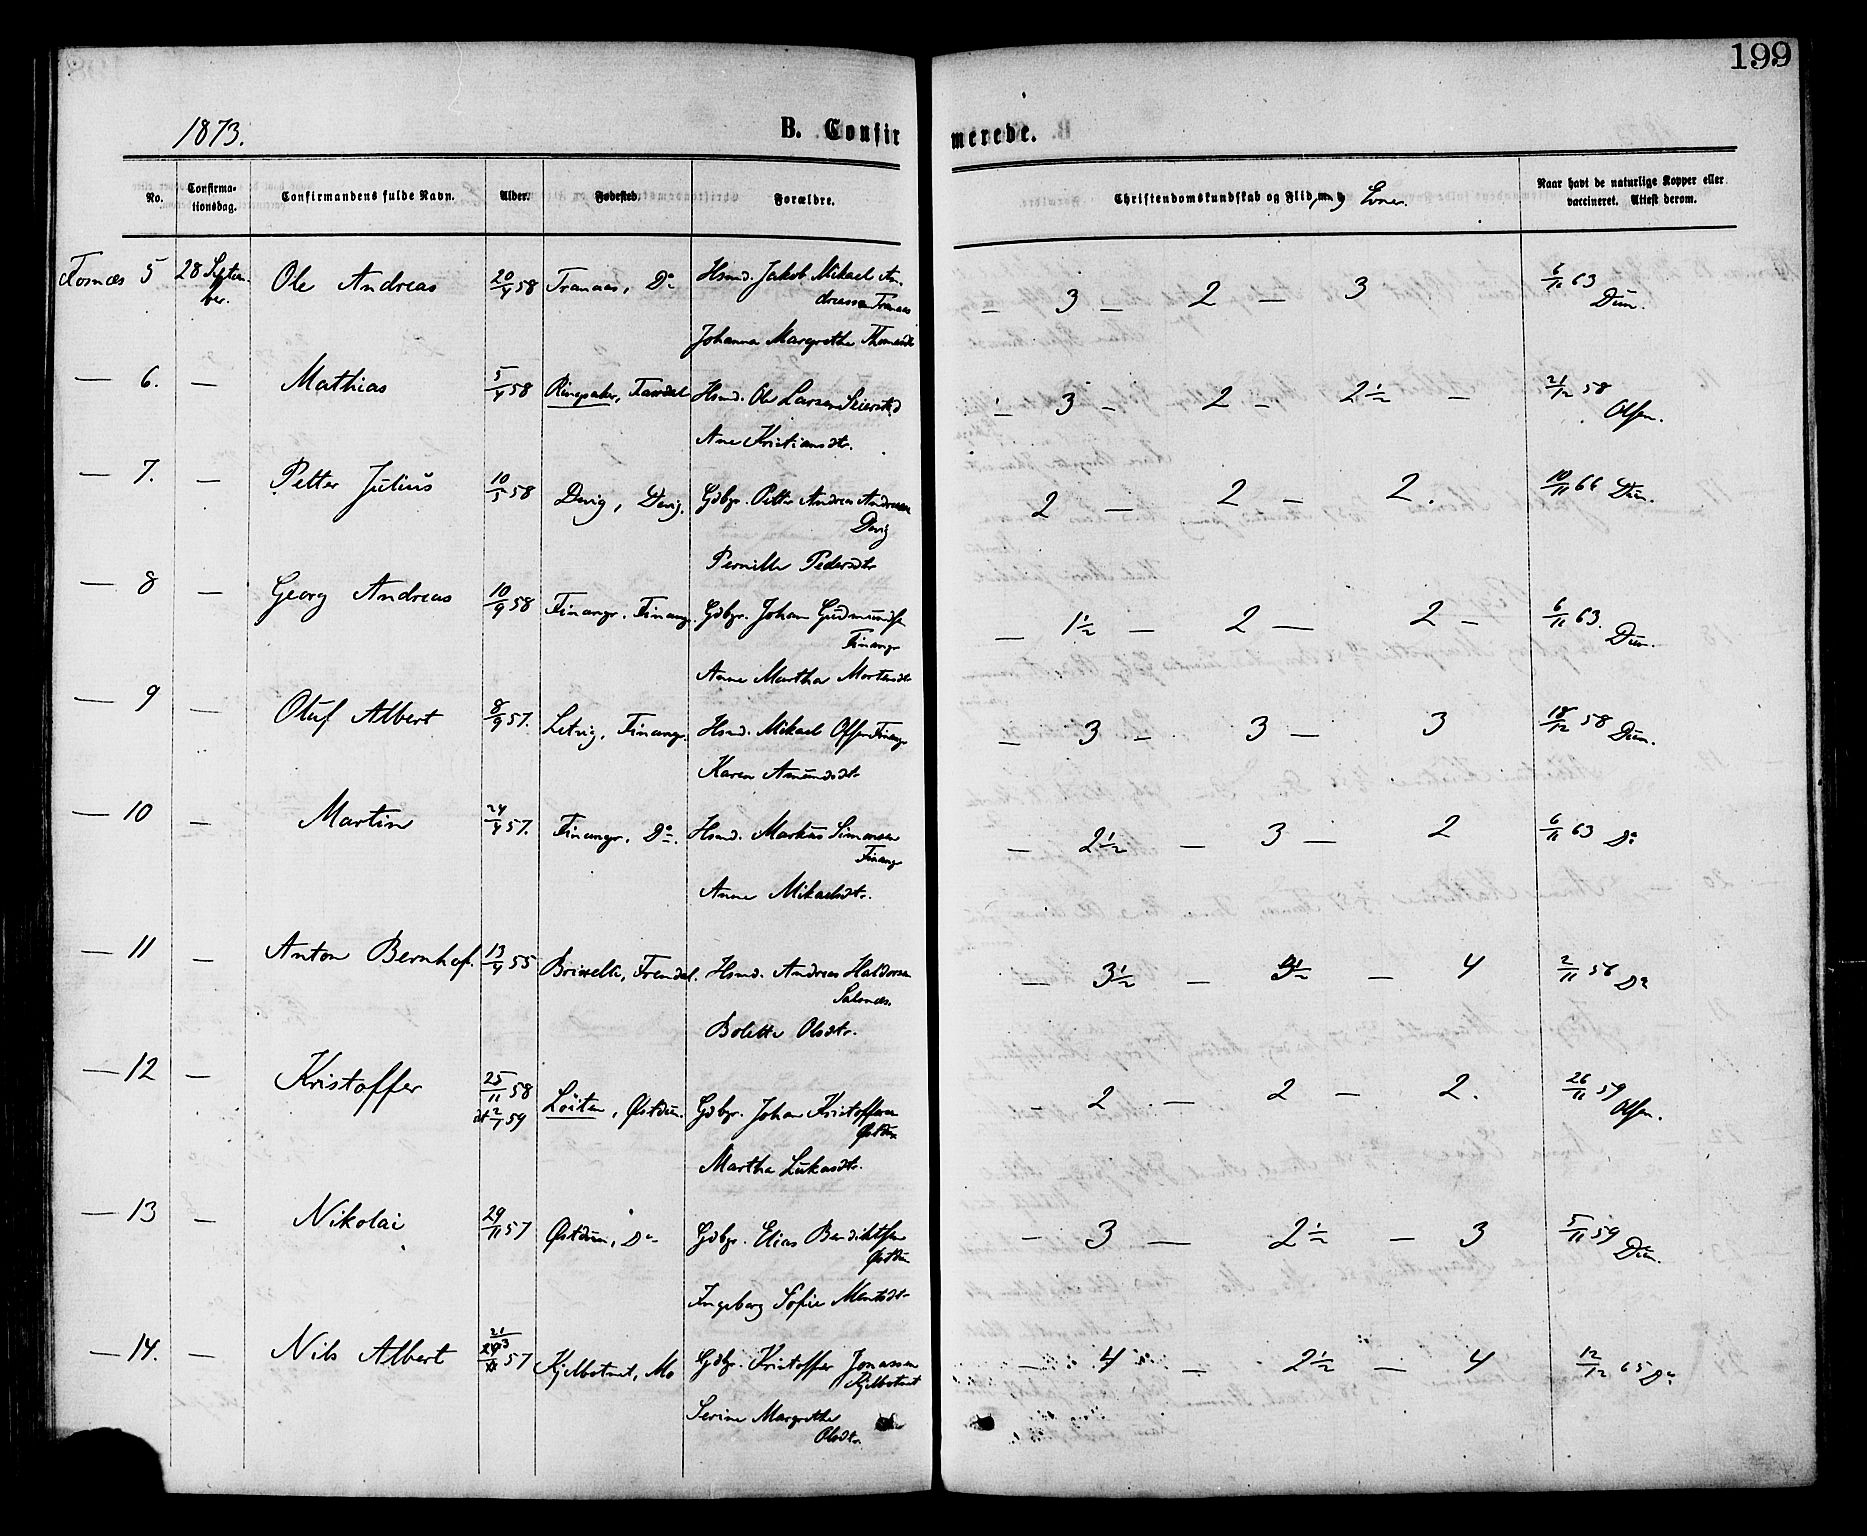 199
1873.
B. Confirmerede.
No.
Confirmationsdag.
Confirmandens fulde Navn.
Alder.
Fødested.
Forældre.
Christendomskundskab og Flid, Evner.
Naar havt de naturlige Kopper eller vaccineret. Attest derom.
Fosnæs 5 28 September. Ole Andreas 20/4 58 Tranaas, Do Hsmd. Jakob Mikael Andreassen Tranaas
Johanna Margrethe Thomasdtr
— 3 — 2 — 3 6/11 63 Dün.
— 6. — Mathias 5/4 58 Ringsaker, Hsmd. Ole Larsen Seiersted
Ane Kristiansdtr.
— 3 — 2 — 2½ — 21/12 58 Olsen.
— 7. — Petter Julius 10/5 58 Devig, Devig. Gdbgr. Petter Andreas Andreassen Devig
Pernille Pedersdtr
2 — 2 — 2. 10/11 66 Dün.
— 8 — Georg Andreas 10/9 58 Finangr. Finangr. Gdbgr. Johan Gudmundsen Finangr
Anne Martha Mortensdtr
— 1½ — 2 — 2 — 6/11 63. Dün.
— 9 — Oluf Albert 8/9 57. Letvig, Finangr. Hsmd. Mikael Olsen Finangr
Karen Amundsdtr
— 3 — 3 — 3 18/12 58 Dün.
— 10 — Martin 24/4 57. Finangr, Do. Hsmd. Markus Simonsen Finangr
Anne Mikaelsdtr.
— 2½ — 3 — 2 6/11 63 Do
— 11 — Anton Bernhof. 13/4 55 Hsmd. Andreas Haldorsen Salsnæs.
Bolette Olsdtr.
— 3½ — — 4 2/11 56 Do
— 12 — Kristoffer 25/11 58 dt 2/1 59 Löiten, Østdün. Gdbgr. Johan Kristoffersen Østdün
Martha Lukasdtr.
— 2 — 2 — 2. 26/11 59 Olsen.
— 13 — Nikolai 29/11 57 Østdün, Do Gdbgr. Elias Bendiktsen Østdün
Ingeborg Sofie Mentsdtr
— 3 — 2½ — 3 5/11 59 Dün.
— 14. — Nils Albert 57 Kjelbotnet, Mo Gdbgr. Kristoffer Jonassen Kjelbotnet
Serine Margrethe Olsdtr.
— 4 — 2½ — 4 12/12 65 Do